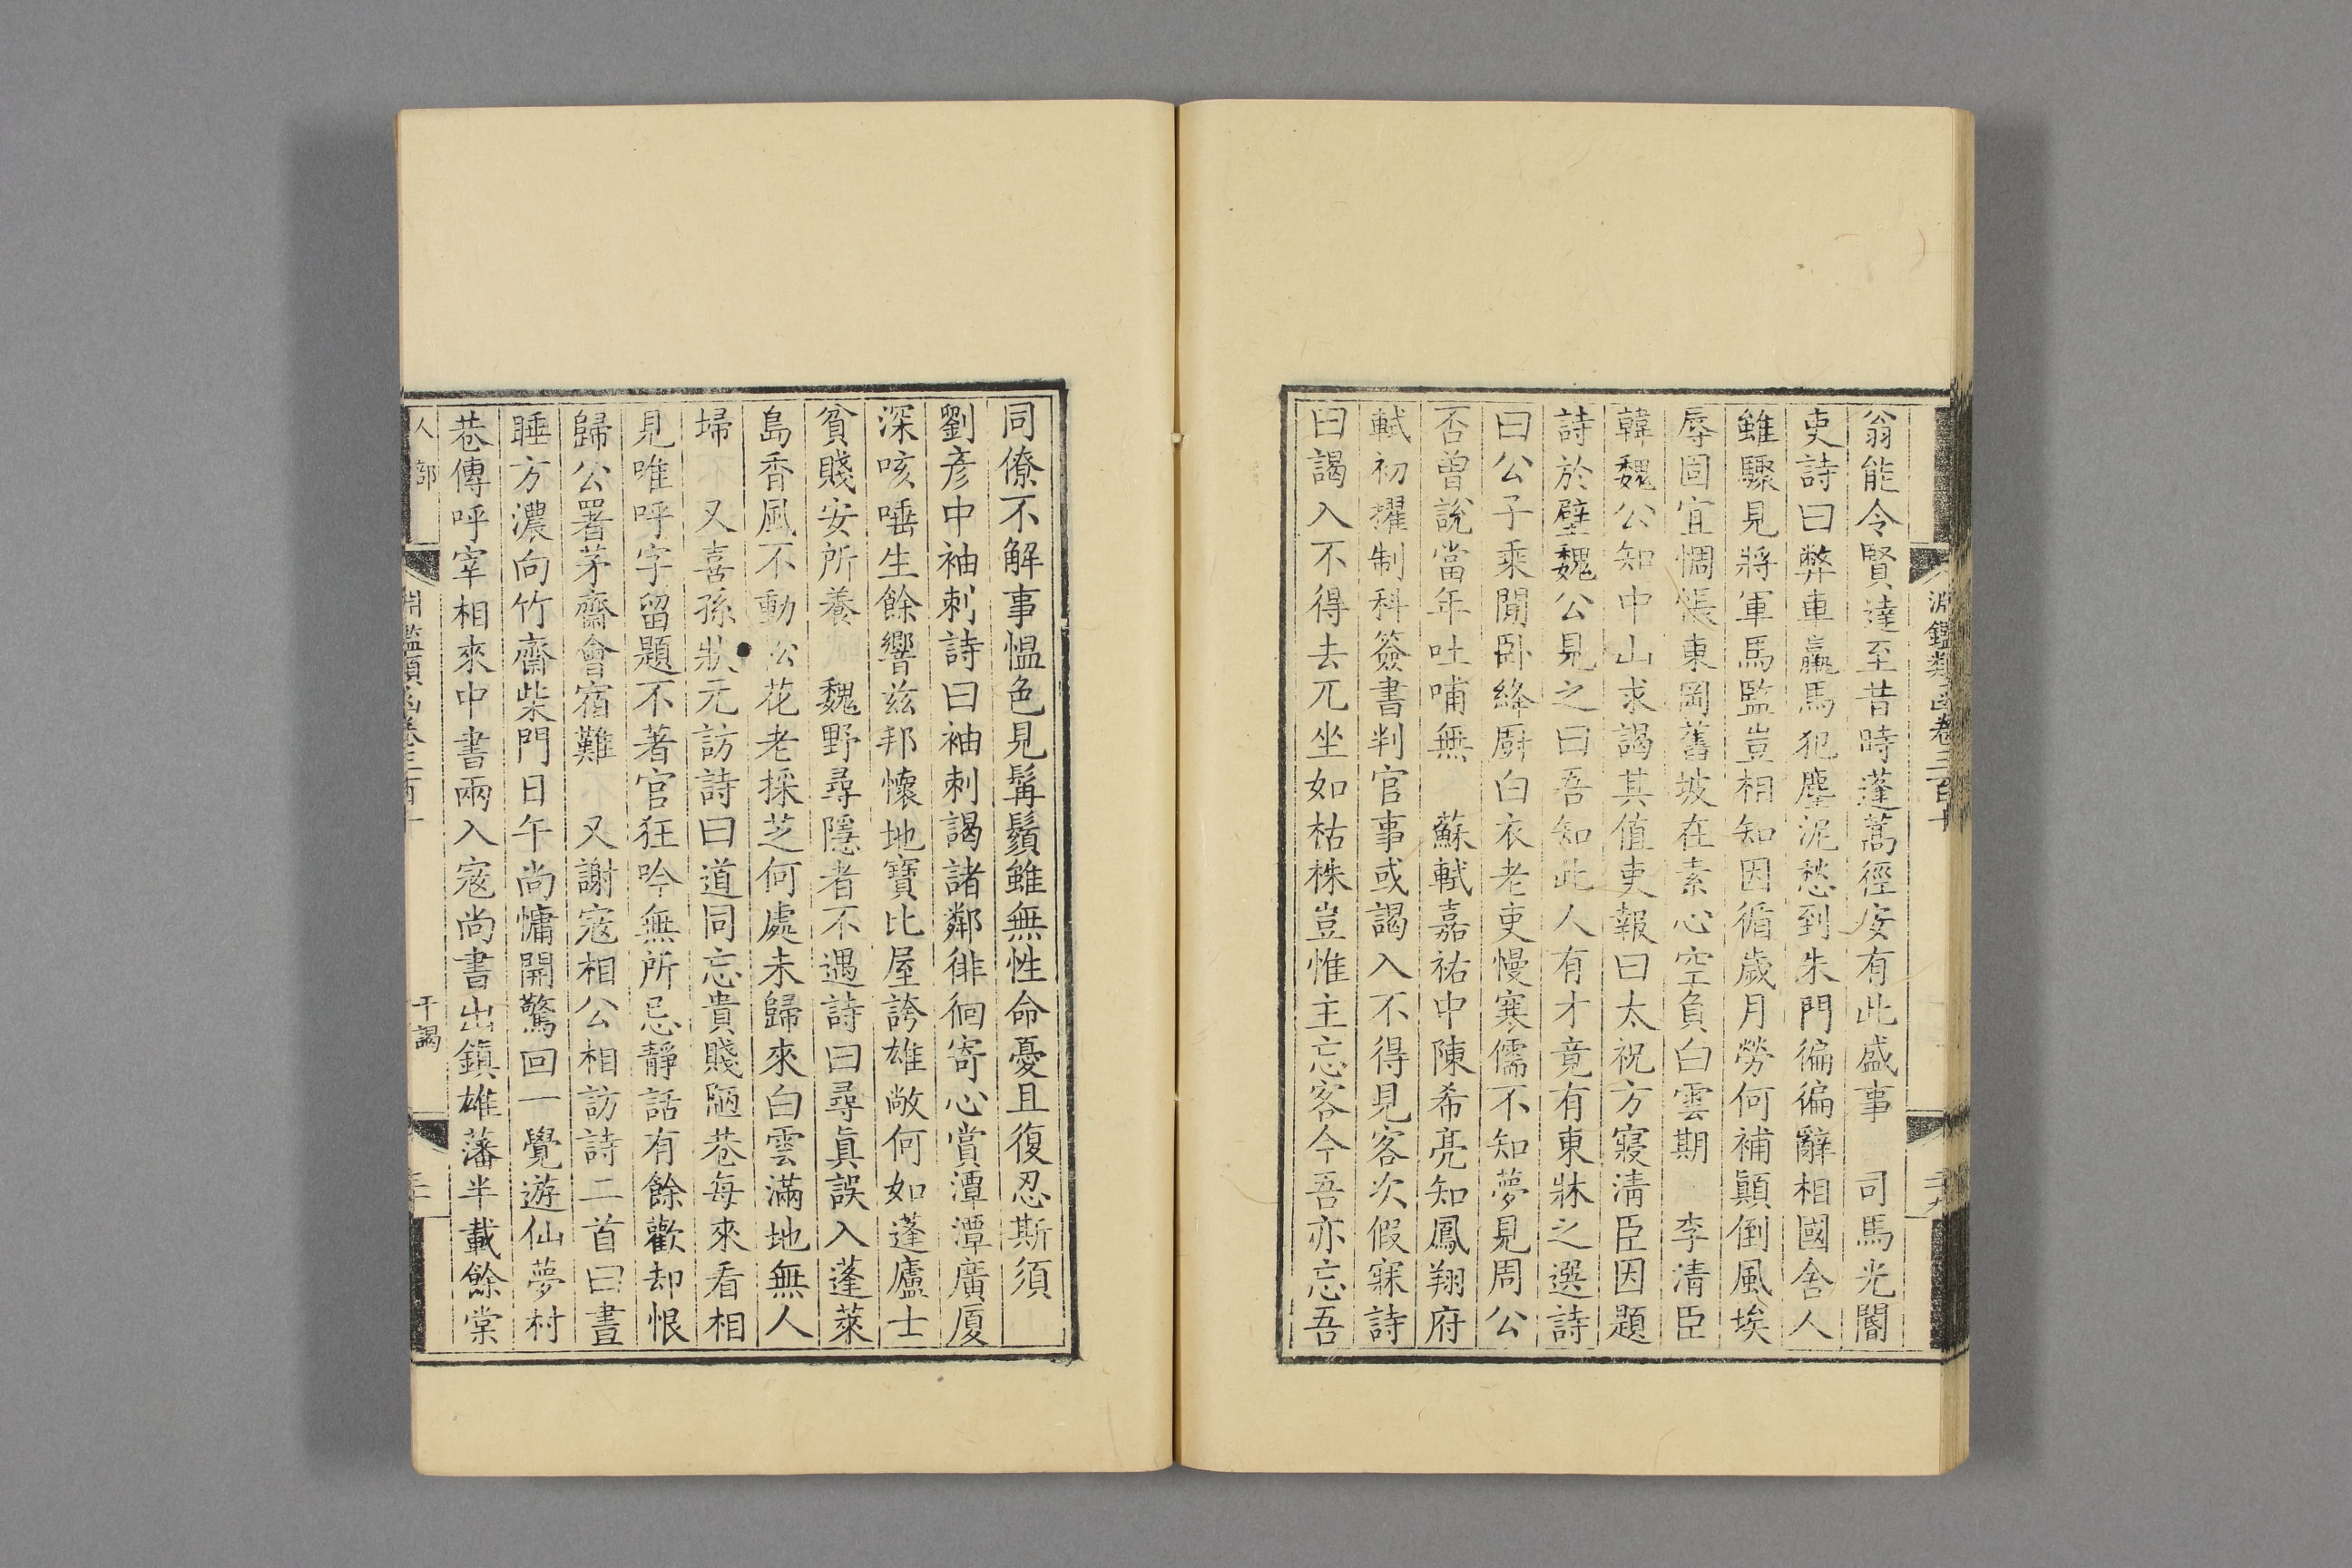 淵鑑類函卷三百十
二十九
翁能令賢達至昔時蓬蒿徑安有此盛事　司馬光閽
吏詩曰弊車羸馬犯塵泥愁到朱門徧徧辭相國舍人
雖驟見將軍馬監豈相知因循歲月勞何補顚倒風埃
辱固宜惆悵東岡舊坡在素心空負白雲期　李清臣
韓魏公知中山求謁其值吏報曰太祝方寢清臣因題
詩於壁魏公見之曰吾知此人有才竟有東牀之選詩
曰公子乘閒卧絳㕑白衣老吏慢寒儒不知夢見周公
否曾說當年吐哺無　蘇軾嘉祐中陳希亮知鳳翔府
軾初擢制科簽書判官事或謁入不得見客次假寐詩
曰謁入不得去兀坐如枯株豈惟主忘客今吾亦忘吾
同僚不解事愠色見髯鬚雖無性命憂且復忍斯須
劉彥中袖刺詩曰袖刺謁諸鄰徘徊寄心賞潭潭廣厦
深咳唾生餘響兹邦懷地寶比屋誇雄敞何如蓬廬士
貧賤安所養　魏野尋隱者不遇詩曰尋眞誤入蓬萊
島香風不動松花老採芝何處未歸來白雲滿地無人
埽　又喜孫狀元訪詩曰道同忘貴賤陋巷每來看相
見唯呼字留題不著官狂吟無所忌靜話有餘歡却恨
歸公署茅齋會宿難　又謝寇相公相訪詩二首曰晝
睡方濃向竹齋柴門日午尚慵開驚回一覺遊仙夢村
巷傳呼宰相來中書兩入寇尚書出鎮雄藩半載餘棠
人部
淵鑑類函卷三百十
干謁
三十